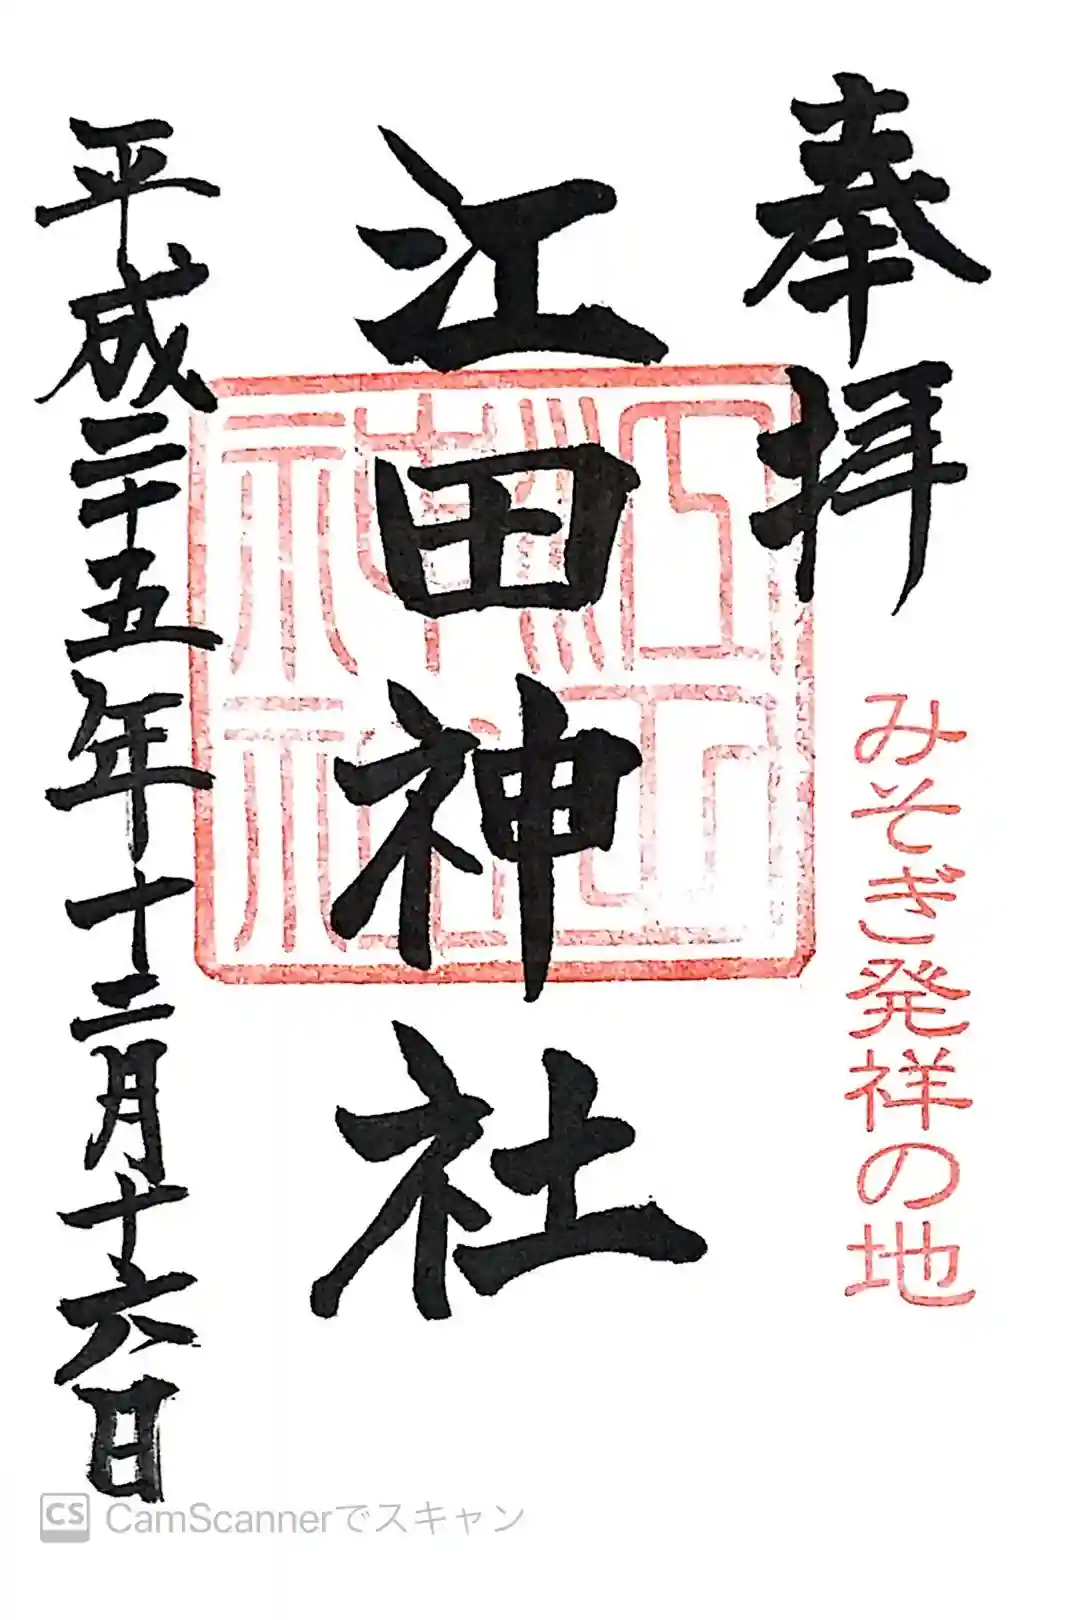 奉拝
みそぎ発祥の地
江田神社
平成二十五年十二月十六日
CS CamScannerでスキャン